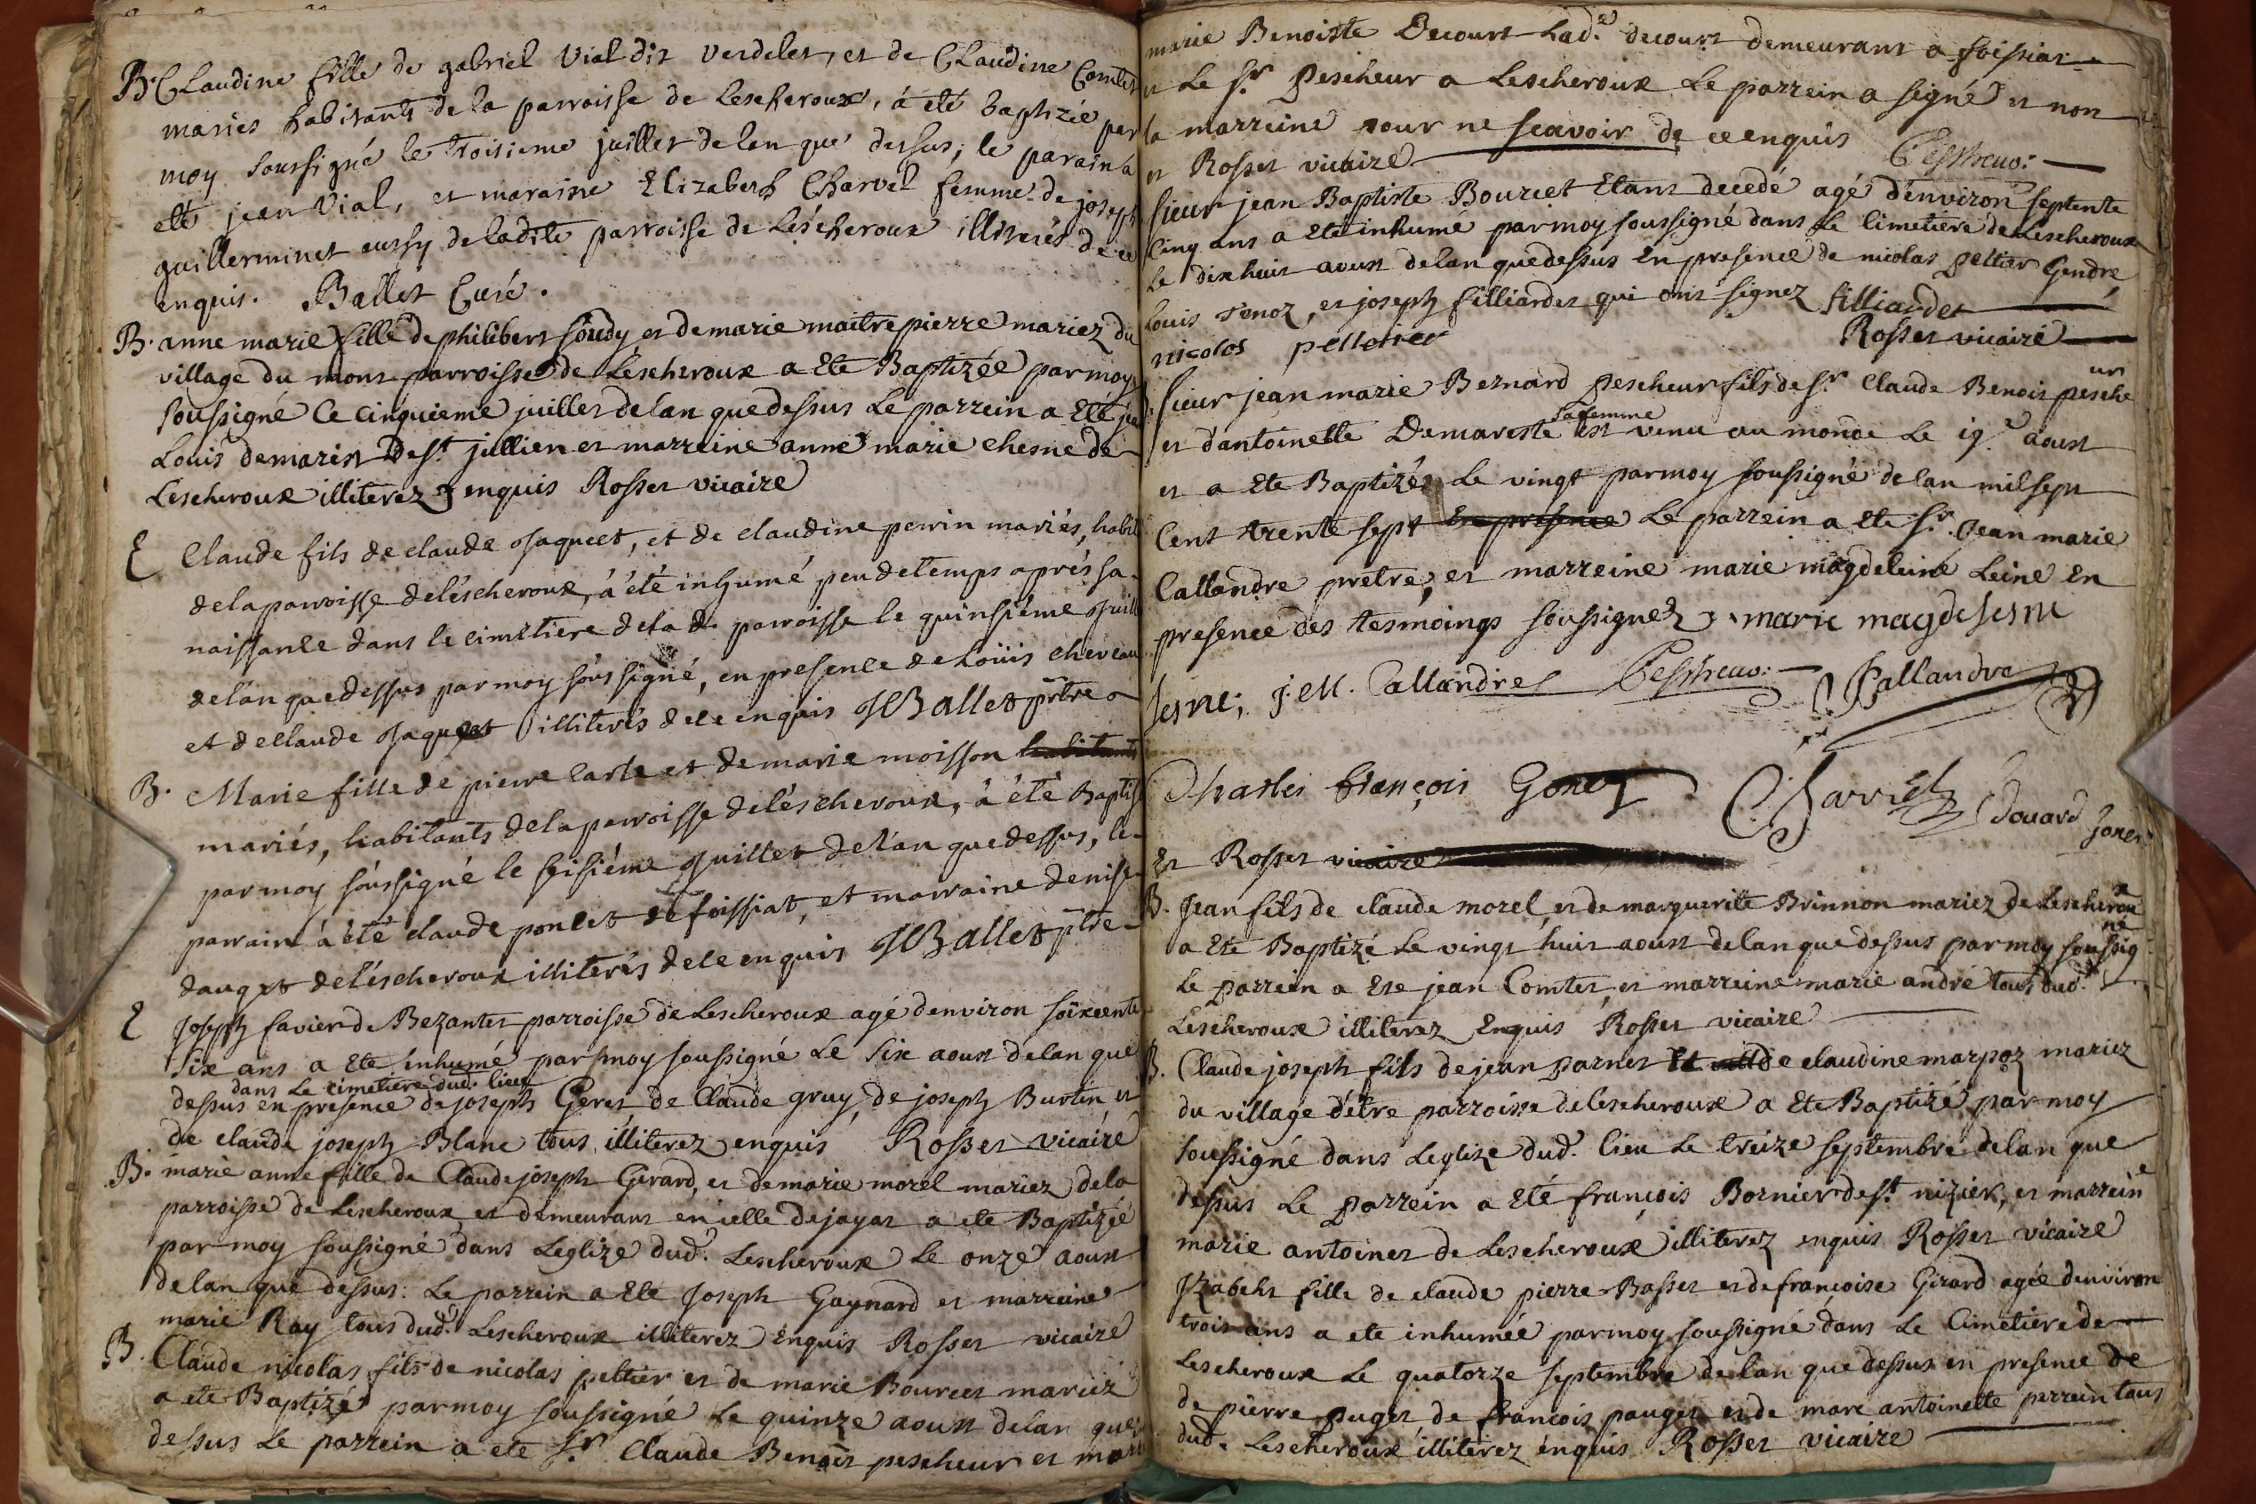 B. Claudine fille de gabriel Vial dit verdelet, et de Claudine Comtet
maries habitants de la parroisse de Lescheroux, á eté baptizée par
moy soussigné le troisieme juillet de lan que dessus; le parain a
eté jean Vial, et maraine Elizabeth Charvel femme de joseph
guillerminet aussy de ladite parroisse de Léscheroux illiterés de ce
enquis. Ballet Curé.
B. anne marie fille de philibert soudy et de marie maitrepierre mariez du
village du mont parroisse de Lescheroux a Ete Baptizée par moy
soussigné Ce cinquieme juillet de lan que dessus Le parrein a Eté
Louis demarest De st. jullien et marreine anne marie chesne de
Lescheroux illiterez enquis Rosset vicaire
E Claude fils de claude Jaquet, et de claudine perrin mariés, habit
de la parroisse de léscheroux, à été inhumé peu de temps aprés sa
naissance dans le cimetiere de la d. parroisse le quinsiéme Juill
de lán que dessus par moy soussigné, en presence de Loüis cheveau
et de Claude Jaquet illiterés de ce enquis JBallet prêtre
B. Marie fille de pierre Carle et de marie moisson habitants
mariés, habitants de la parroisse de léscheroux, à été Baptis
par moy soussigné le seisiéme Juillet de lán que dessus, le
parrain à été claude poncet de foissiat, et marraine denise
dauget de léscheroux illiterés de ce enquis JBallet ptre
E Joseph favier de Bezantet parroisse de Lescheroux agé denviron soixcente
six ans a Ete inhumé par moy soussigné Le six aoust de lan que
dans Le cimetiere dud. lieu
dessus en presence de joseph Geret de Claude gruy, de joseph Burtin et
de claude joseph Blanc tous illiterez enquis Rosset vicaire
B. marie anne fille de Claude joseph Girard, et de marie morel mariez de la
parroisse de Lescheroux et demeurant en icelle de jayat a ete Baptizée
par moy soussigné dans Leglize dud. Lescheroux Le onze aoust
de lan que dessus: Le parrein a Ete Joseph Gaynard et marreine
marie Ray tous dud. Lescheroux illiterez Enquis Rosset vicaire
B. Claude nicolas fils de nicolas peltier et de marie Bourcet mariez
a ete Baptizé par moy soussigné Le quinze aoust de lan que
dessus Le parrein a ete sr. Claude Benoit pescheur et marr
marie Benoiste Decourt Lad. decourt demeurant a foissiat
et Le sr. Pescheur a Lescheroux Le parrein a signé et non
la marreine pour ne scavoir de ce enquis
et Rosset vicaire
sieur jean Baptiste Bourcet Etant decedé agé d'environ septente
Cinq ans a Ete inhumé par moy soussigné dans Le Cimetiere de Lescheroux
Le dixhuit aoust de lan que dessus En presence de nicolas peltier Gendre
Louis , et joseph filliardet qui ont signez filliardet
nicolos pelletier Rosset vicaire
sieur jean marie Bernard pescheur fils de sr. Claude Benoit pescheur
et d'antoinette Demareste sa femme est venu au monde Le 19e aoust
et a Ete Baptizé Le vingt par moy soussigné de lan mil sept
Cent trente sept En presence Le parrein a Ete sr. Jean marie
Callandre pretre, et marreine marie magdeleine Leine En
presence des tesmoings soussignez marie magdelesne
lesne; J. M. Callandre Callandre
Charles françois Gonez Charvet Edouard Jonez
et Rosset vicaire
B. Jean fils de claude morel, et de marguerite Brinnon mariez de Lescheroux
a Ete Baptizé Le vingt huit aoust de lan que dessus par moy soussigné
Le parrein a Ete jean Comtet, et marreine marie andré tous dud.
Lescheroux illiterez Enquis Rosset vicaire
B. Claude joseph fils de jean parnet de claudine marpoz mariez
du village détre parroisse de Lescheroux a Ete Baptizé par moy
soussigné dans Leglize dud. lieu Le treize septembre de lan que
dessus Le parrein a Eté françois Bornier de st. nizier, et marreine
marie antoinet de Lescheroux illiterez enquis Rosset vicaire
Izabeht fille de claude pierre Basset et de francoise Girard agée denviron
trois ans a ete inhumée par moy soussigné dans Le Cimetiere de
Lescheroux Le quatorze septembre de lan que dessus en presence de
de pierre puget de francois pauget et de marc antoinette perrein tous
dud. Lescheroux illiterez enquis Rosset vicaire